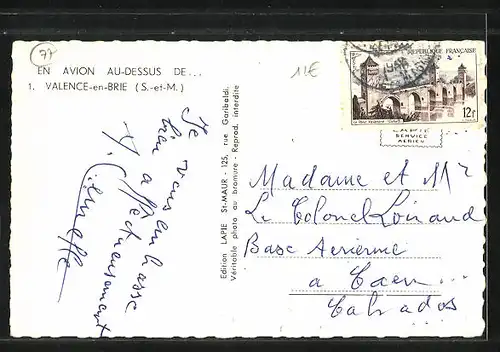 77
EN AVION AU-DESSUS DE...
1. VALENCE-en-BRIE (S.-et-M.)
11€
RÉPUBLIQUE FRANÇAISE
12F
LAPIE
SERVICE
AÉRIEN
Je vous embrasse
bien
affectueusement
Edition LAPIE St-MAUR - 125, rue Garibaldi.
Véritable photo au bromure - Reprod. interdite
Madame et Mr
Le Colonel Loiraud
Base Aérienne
à Caen...
Calvados